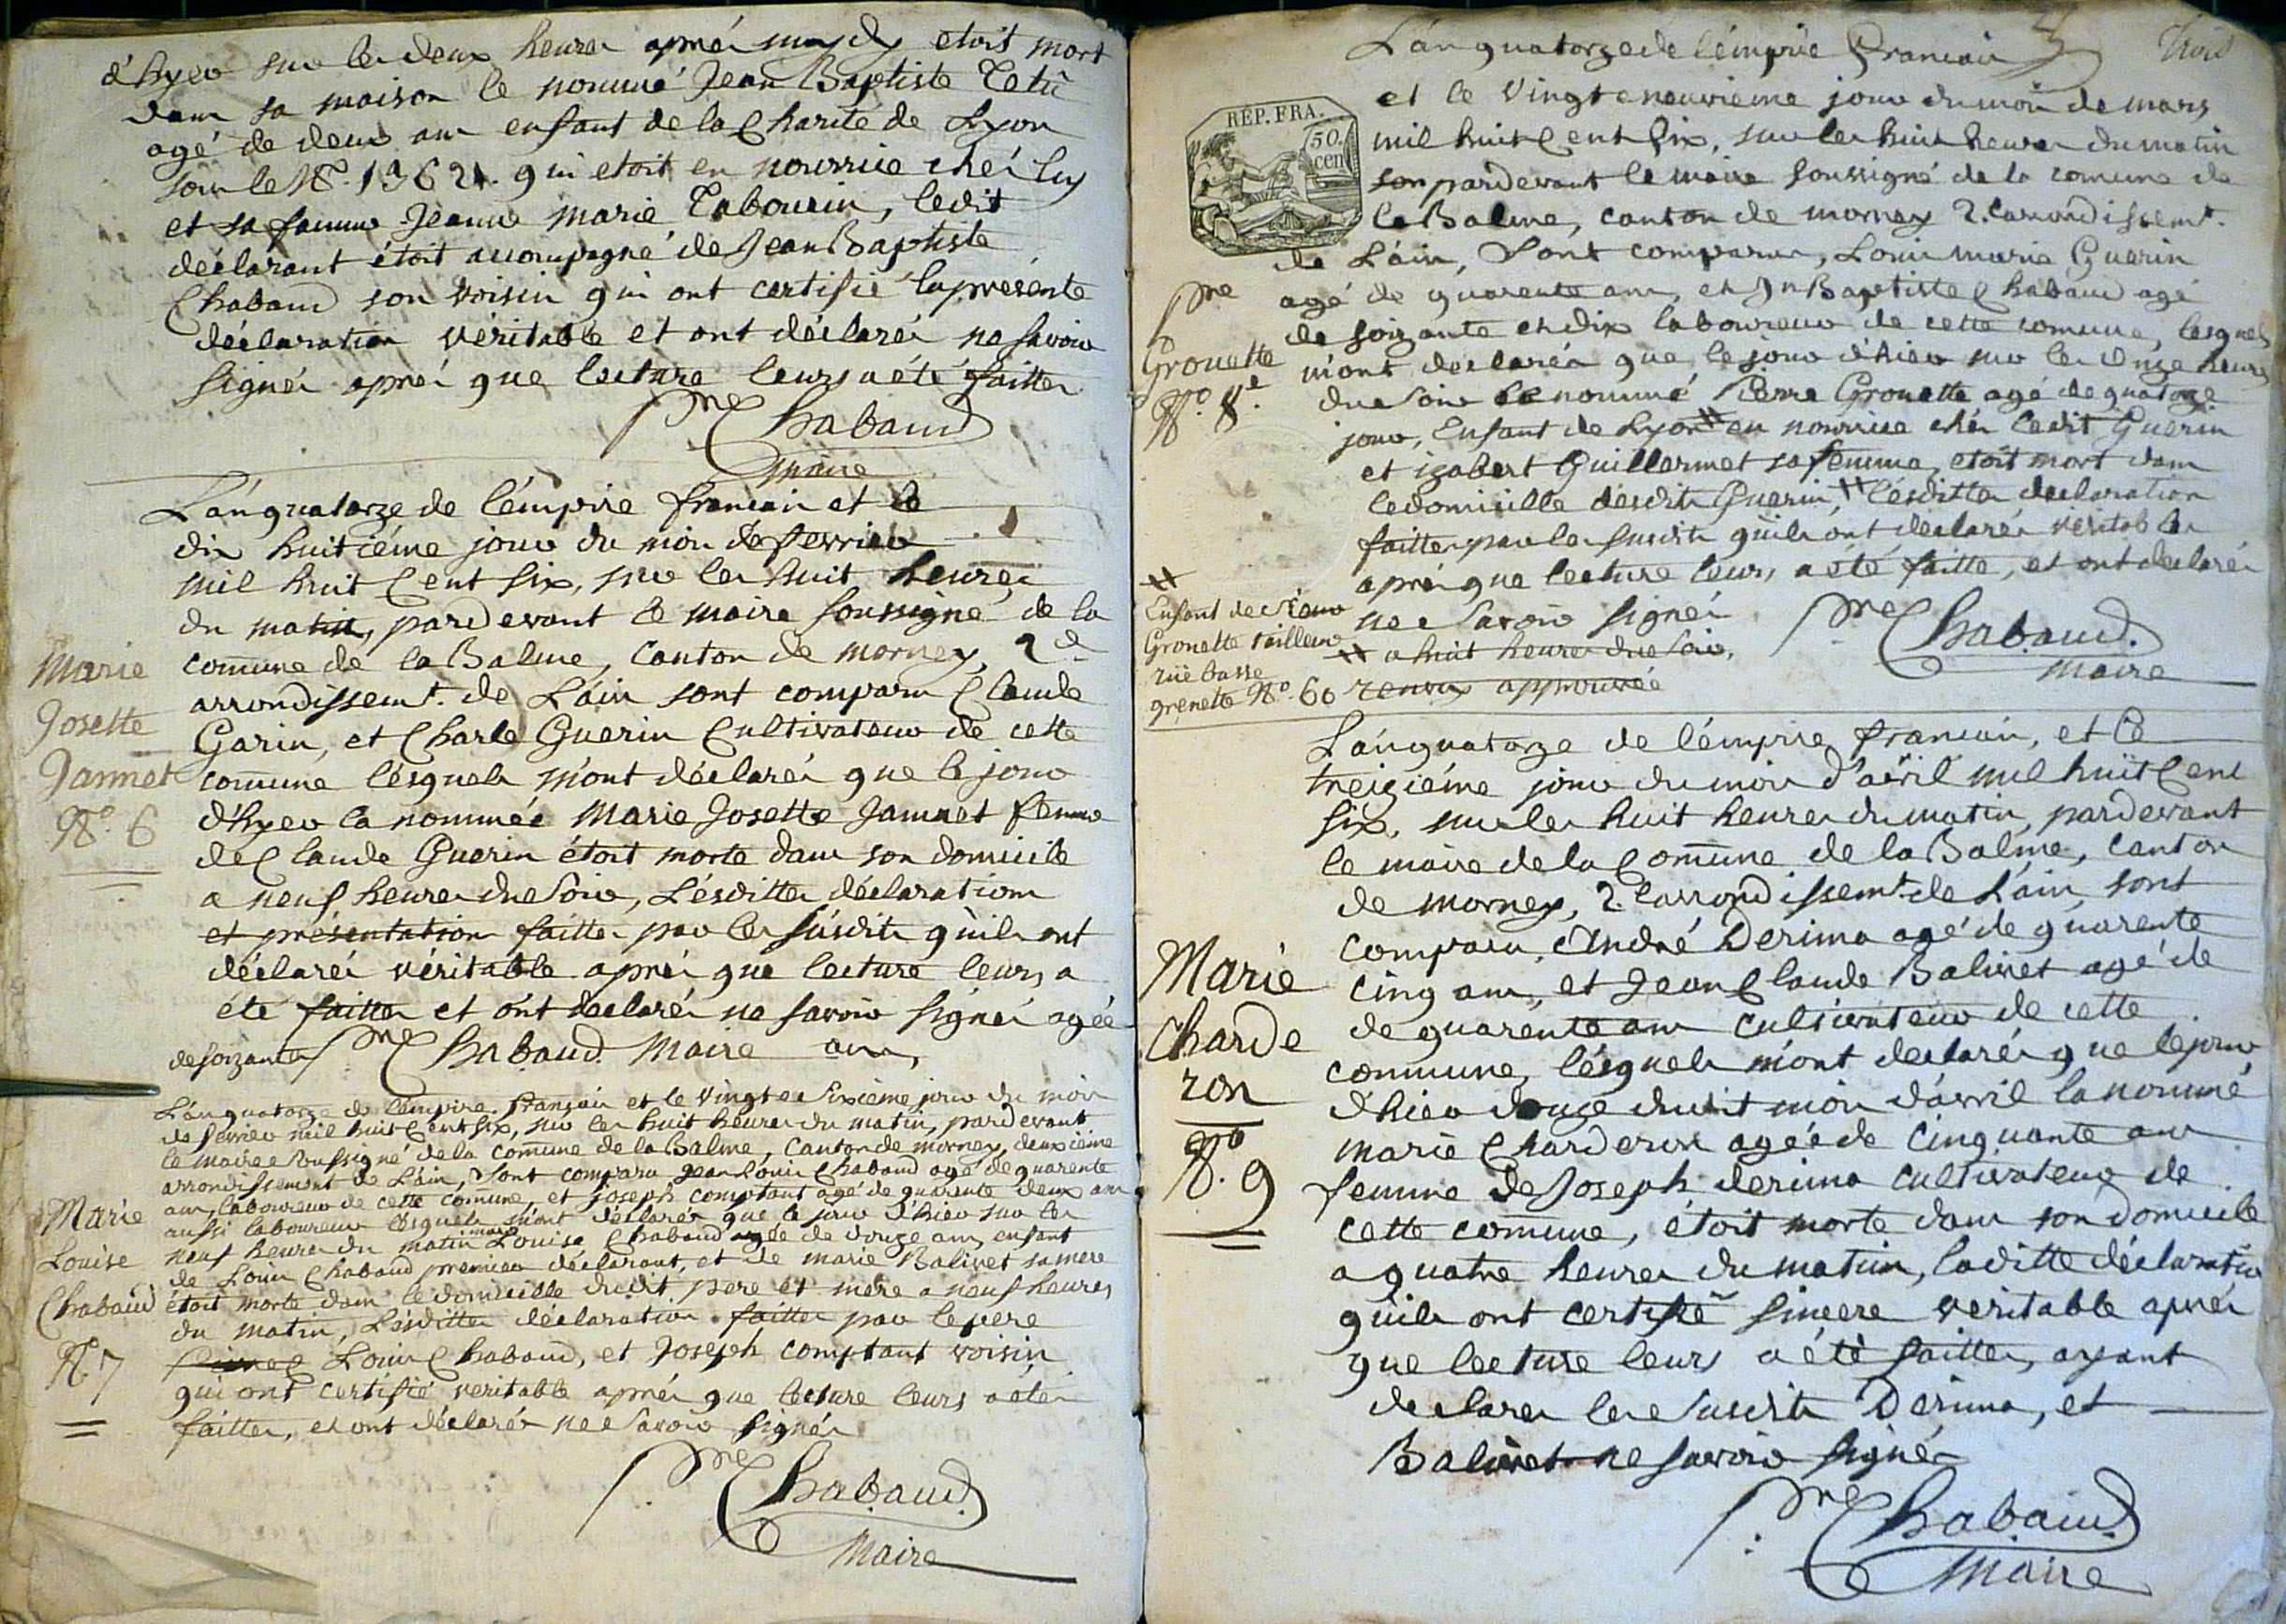 d'hyer sur les deux heures après mydy etoit mort
dans sa maison le nommé Jean Baptiste Tetû
agé de deux ans enfant de la Charité de Lyon
sous le N°. qui etoit en nourrice chés luy
et sa famme Jeanne Marie Tabourin, ledit
déclarant étoit accompagné de Jean Baptiste
Chabaud son voisin qui ont certifié la présente
déclaration véritable et ont déclarés ne savoir
signér aprés que lecture leurs a été faitte
Pre Chabaud
Maire
L'an quatorze de l'émpire francais et le
dix huitiéme jour du mois de fevrier
mil huit Cent six, sur les huit heures
du matin, pardevant le maire soussigné de la
comune de la Balme, Canton de mornay, 2e
arrondissemt. de L'ain sont comparu Claude
Garin, et Charle Guerin Cultivateur de cette
comune lésquels m'ont déclarés que le jour
d'hyer la nommée Marie Josette Jannet femme
de Claude Guerin étoit morte dans son domicile
a neuf heures du Soir, Lésdittes déclarations
et présentation faittes par les súsdits qu'ils ont
déclarés véritable aprés que lecture leurs a
été faitte et ont declarés ne savoir signér agée
de soizante ans,
Pre Chabaud Maire
Marie
Josette
Jannet
N°. 6
L'an quatorze de l'émpire francais et le vingt e sixiéme jour du mois
de fevrier mil huit Cent six, sur les huit heures du matin, pardevant
le maire soussigné de la comune de la Balme, Canton de mornay, deuxiéme
arrondissement de L'ain, sont comparu Jean Louis Chabaud agé de quarente
ans, laboureur de cette comune, et joseph comptant agé de quarente deux ans
aussi laboureur lésquels m'ont déclarés que le jour d'hier sur les
neuf heures du matin marie Louise Chabaud agée de douze ans, enfant
de Louis Chabaud premier déclarant, et de marie Balivet sa mere
étoit morte dans le domicille dudit pere et mere a neuf heures
du matin, Lésdittes déclaration faittes par le pere
Louis Chabaud, et Joseph comptant voisin
qui ont certifié veritable aprés que lecture leurs a été
faitte, et ont déclarés ne Savoir signér
Marie
Louise
Chabaud
N°. 7
Pre Chabaud
Maire
trois
L'an quatorze de l'émpire francais
et le Vingt e neuvieme jour du mois de mars
mil huit Cent Six, sur les huit heures du matin
son pardevant le maire soussigné de la comune de
la Balme, canton de mornay 2.e arrondissemt.
de L'ain, Sont comparu, Louis marie Guerin
agé de quarente ans, et Jn Baptiste Chabaud agé
de soizante et dix laboureur de cette comune, lesquels
m'ont declarés que le jour d'hier sur les onze heures
du Soir le nommé Pierre Grouette agé de quatorze
jour, Enfant de Lyon # en nourrice chés ledit Guerin
et izabert Guillermet sa femme, etoit mort dans
le domicille desdits Guerin, # lésdittes declaration
faittes par les susdits qu'ils ont declarés véritable
aprés que lecture leurs a été faitte, et ont declarés
ne Savoir signér
# a huit heures du Soir,
renvoy approuvée
Pre Chabaud
Maire
RÉP. FRA.
50.
cen
Pre
Grouette
N°. 8.
#
Enfant de
Grouette tailleur
rüe basse
grenette N°. 60
L'an quatorze de l'émpire francais, et le
treiziéme jour du mois d'avril mil huit Cent
six, sur les huit heures du matin, pardevant
le maire de la Comune de la Balme, Canton
de mornay, 2.e arrondissemt. de L'ain, sont
comparu, André Derima agé de quarente
cinq ans, et Jean Claude Balivet agé de
de quarente ans cultivateur de cette
commune, lésquels m'ont declarés que le jour
d'hier douze dudit mois d'avril la nommé
marie Charderon agée de Cinquante ans
femme de Joseph derima cultivateur de
cette comune, étoit morte dans son domicile
a quatre heures du matin, laditte déclaration
qu'ils ont certifié sincere veritable aprés
que lecture leurs a été faitte, ayant
declarer les susdits Derima, et
Balivet ne savoir signér
Marie
Charde
ron
N°. 9
Pre Chabaud
Maire